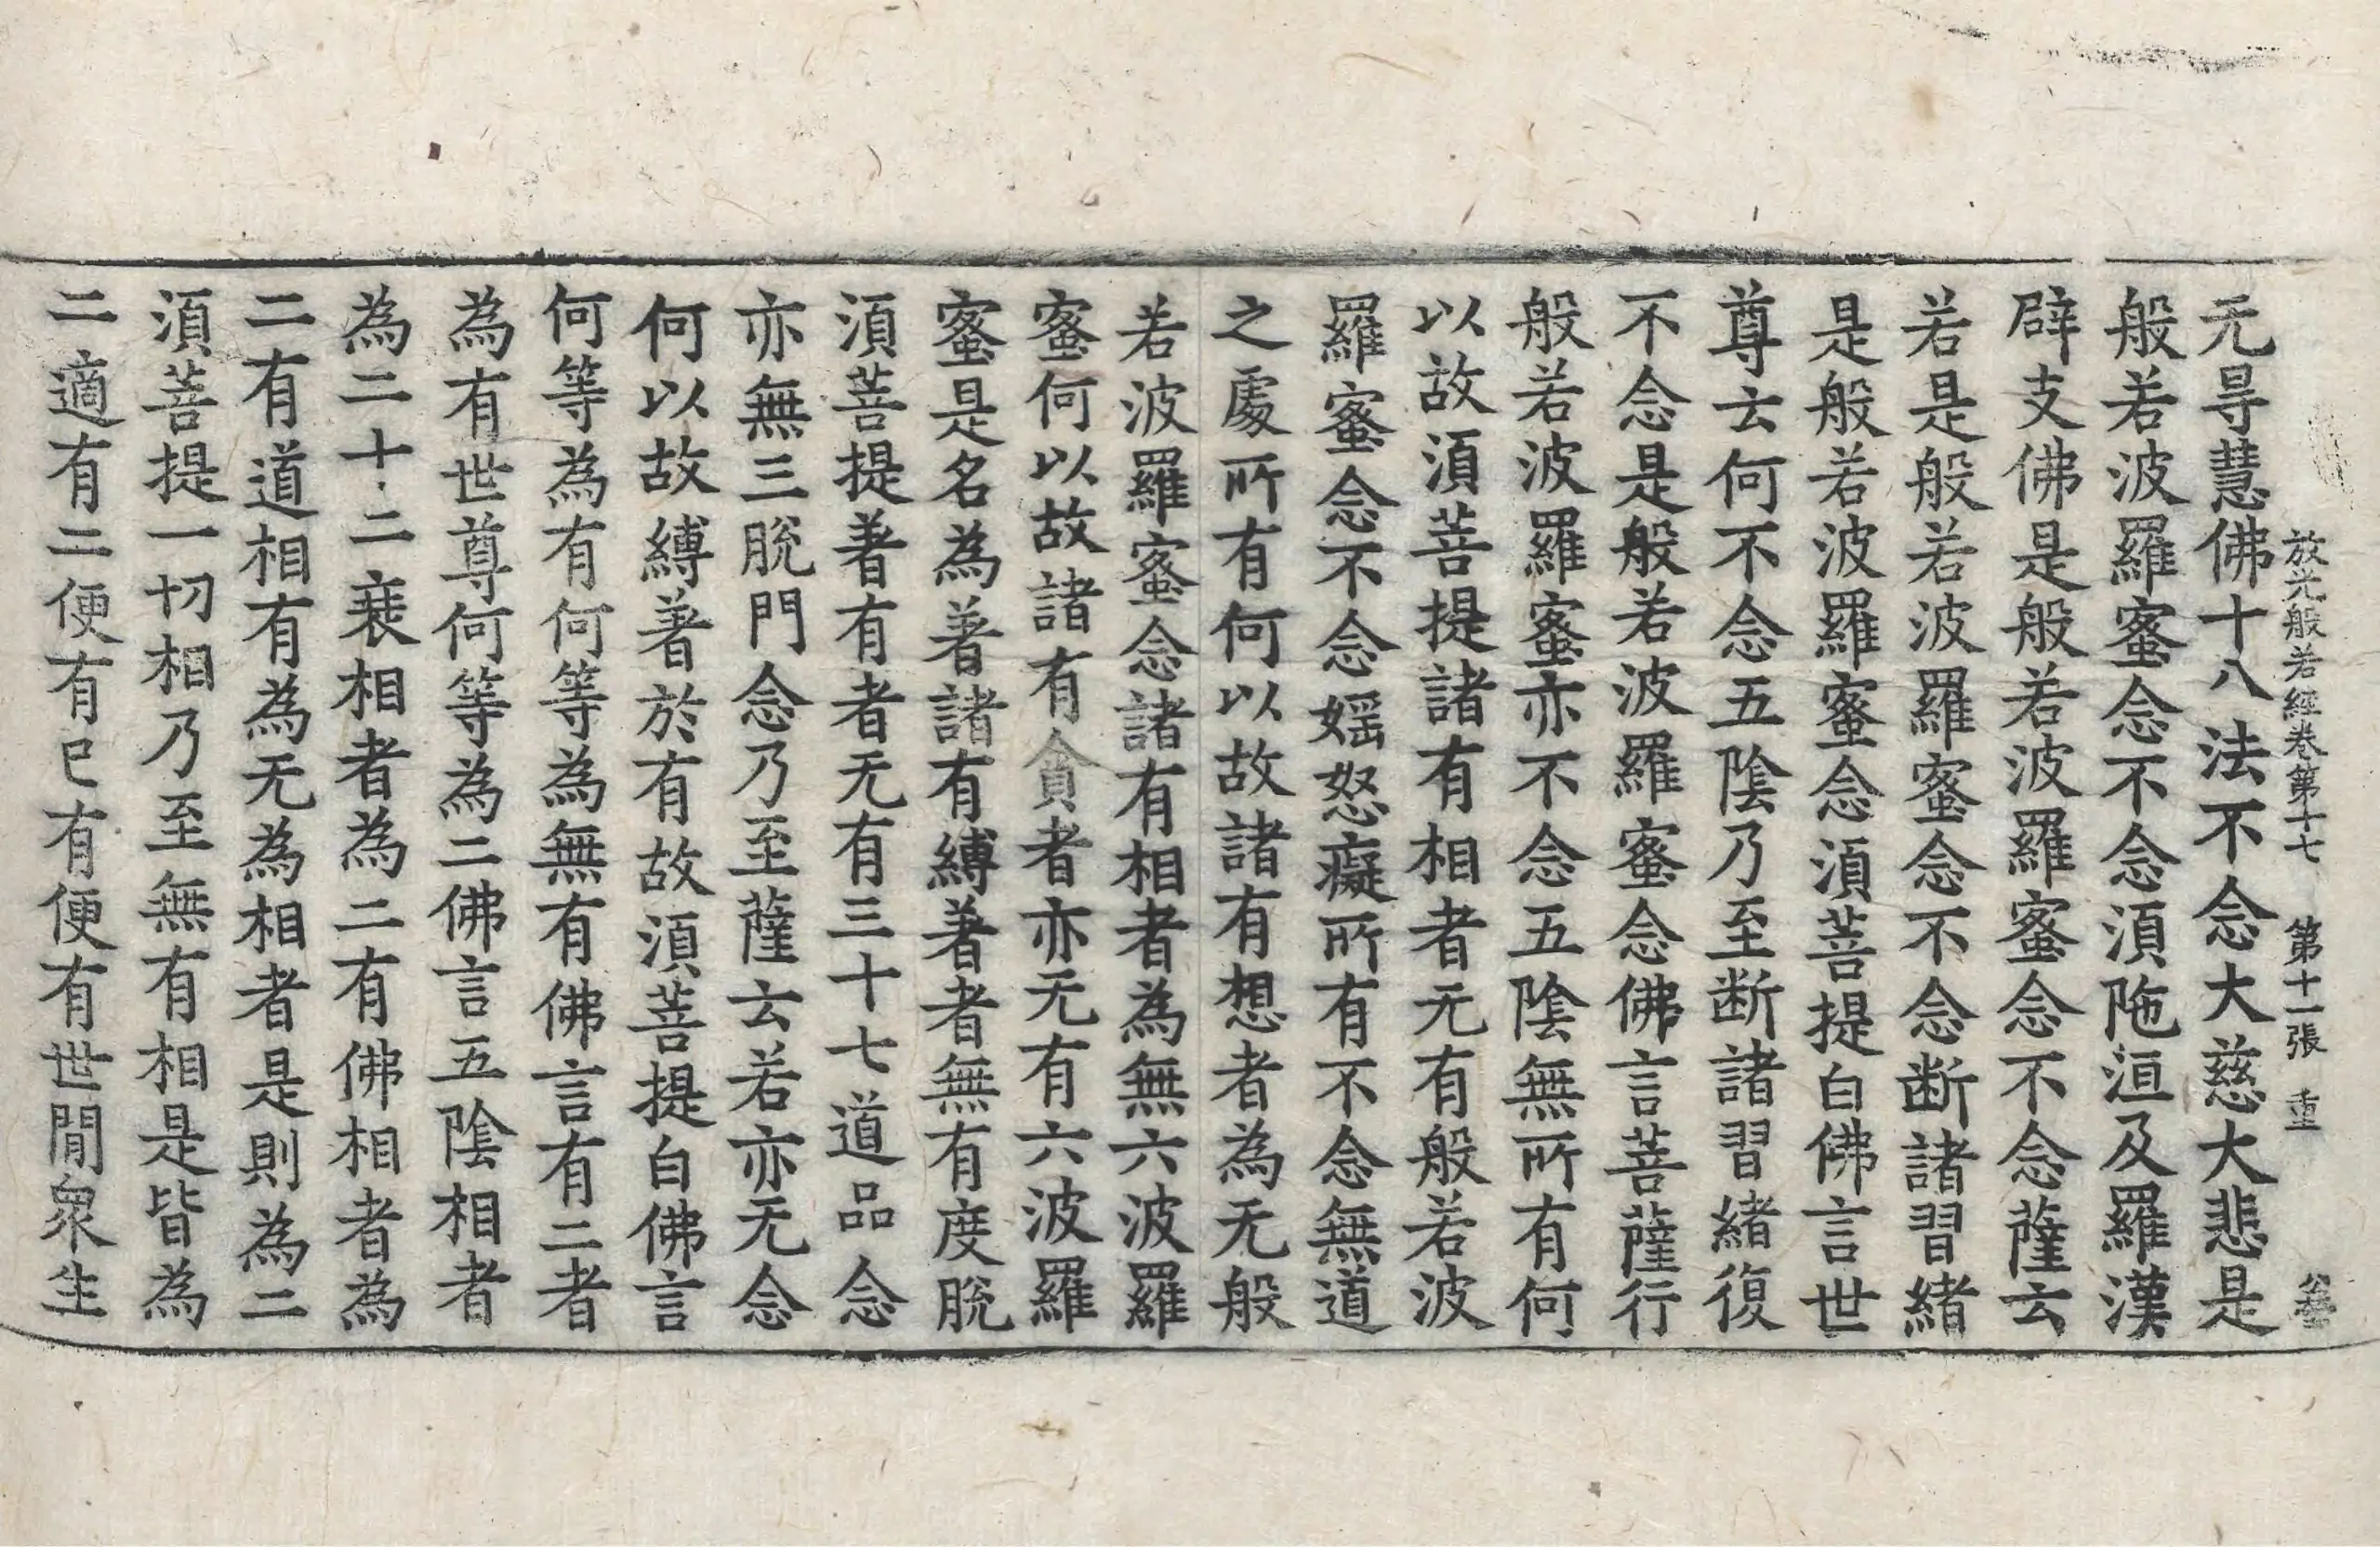 放光般若經卷第十七 第十一張 重
无㝵慧佛十八法不念大慈大悲是
般若波羅蜜念不念湏陁洹及羅漢
辟支佛是般若波羅蜜念不念薩云
若是般若波羅蜜念不念断諸習緒
是般若波羅蜜念湏菩提白佛言世
尊云何不念五陰乃至断諸習緒復
不念是般若波羅蜜念佛言菩薩行
般若波羅蜜亦不念五陰無所有何
以故湏菩提諸有相者无有般若波
羅蜜念不念婬怒癡所有不念無道
之處所有何以故諸有想者為无般
若波羅蜜念諸有相者為無六波羅
蜜何以故諸有貪者亦无有六波羅
蜜是名為著諸有縛著者無有度脫
湏菩提著有者无有三十七道品念
亦無三脫門念乃至薩云若亦无念
何以故縛著於有故湏菩提白佛言
何等為有何等為無有佛言有二者
為有世尊何等為二佛言五陰相者
為二十二衰相者為二有佛相者為
二有道相有為无為相者是則為二
湏菩提一切相乃至無有相是皆為
二適有二便有已有便有世間衆生